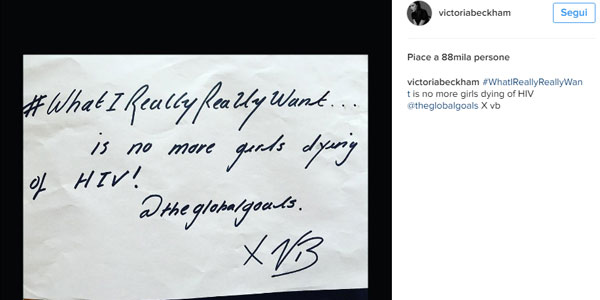 #WhatIReallyReallyWant...
is no more girls dying
of HIV!
@theglobalgoals.
X VB
victoriabeckham
Segui
Piace a 88mila persone
victoriabeckham #WhatIReallyReallyWan
t is no more girls dying of HIV
@theglobalgoals X vb